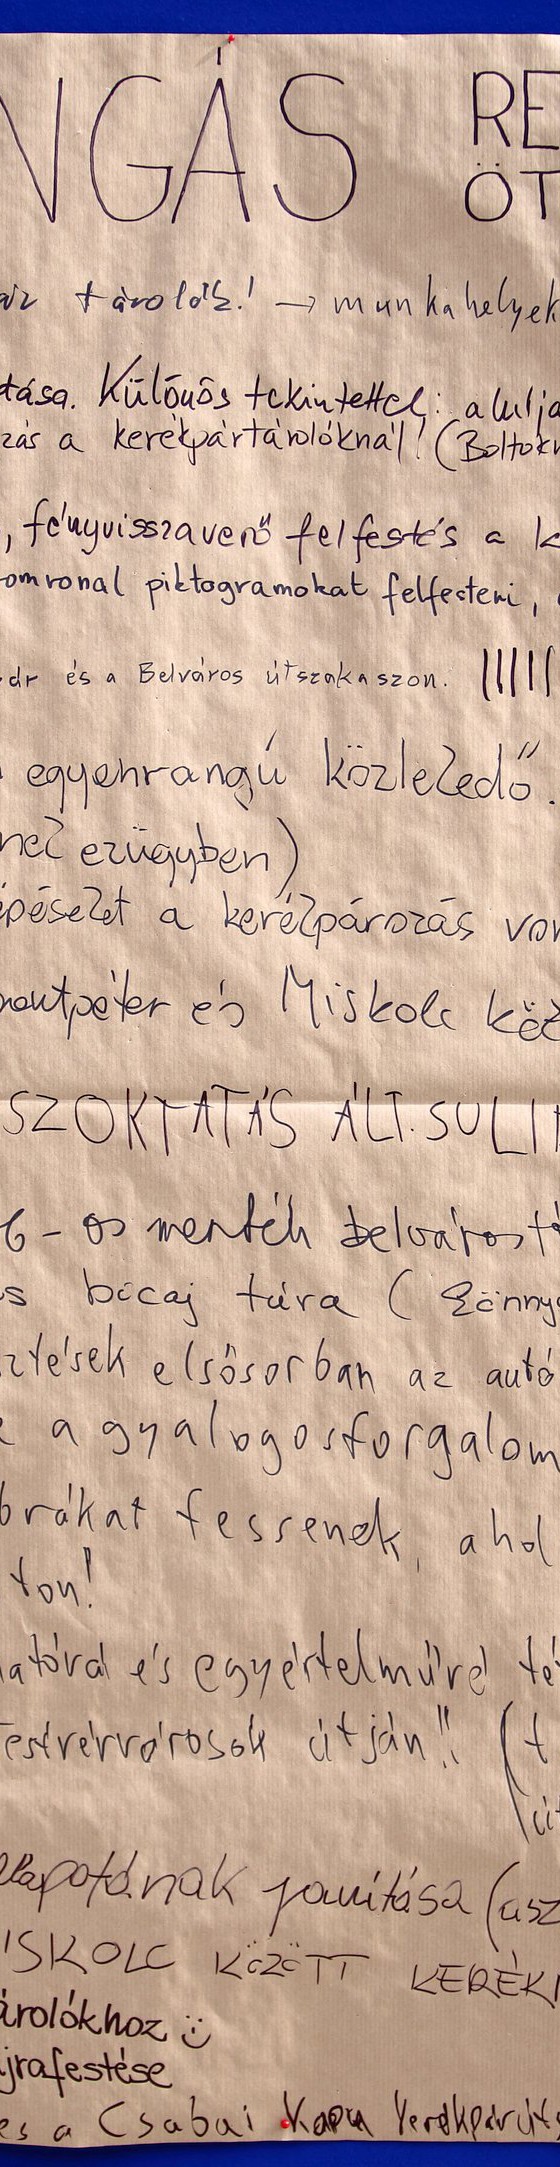 NGÁS RE
ÖT
tárolók! → munkahelyek
tása. Különös tekintettel: alulja
zás a kerékpártárolóknál! (Boltokn
, fényvisszaverő felfestés a k
omronal piktogramokat felfesteni,
és a Belváros útszakaszon. |||||
egyenrangú közlekedő.
nek ezügyben)
épéselet a kerékpározás von
és Miskolc köz
SZOKTATÁS ÁLT. SULI
6-os menték belváros
s bicaj túra ( könny
ztések elsősorban az autó
a gyalogosforgalom
brákat fessenek, ahol
ton!
és egyértelművé té
estvérvárosok útján!! (t
út
llapotának javítása (asz
ISKOLC KÖZÖTT KERÉKP
árolókhoz
jrafestése
és a Csabai Kapu kerékpárút